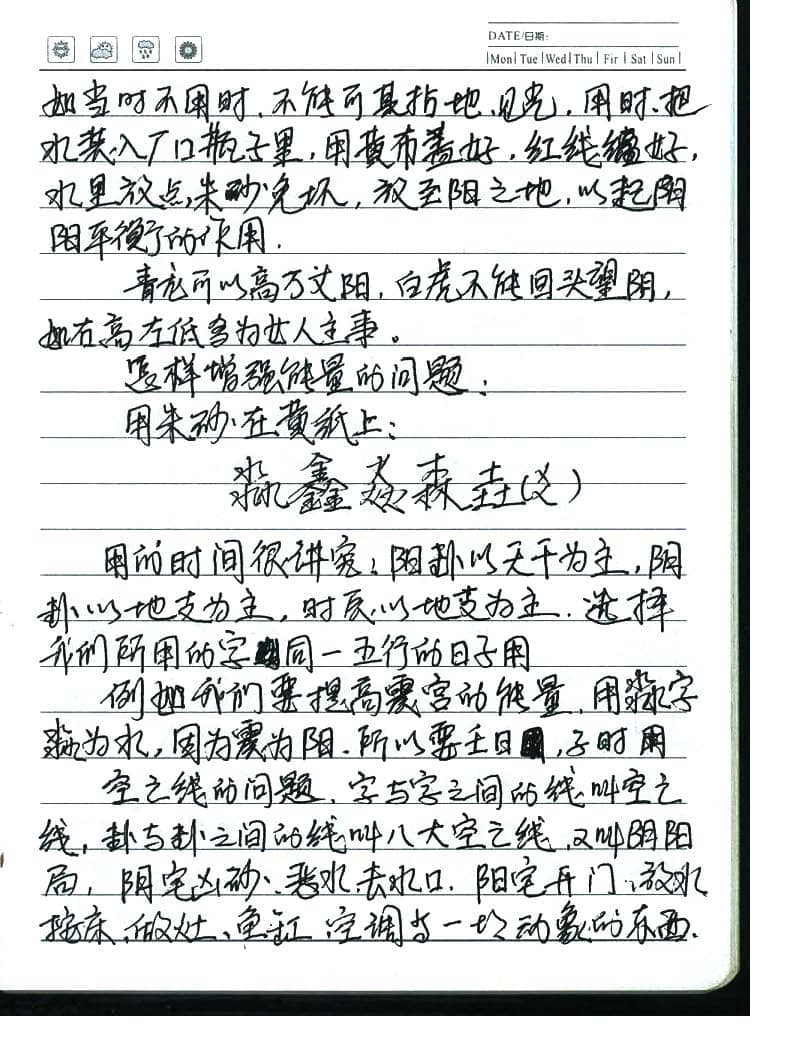 DATE/日期:
Mon Tue Wed Thu Fir Sat Sun
如当时不用时、不能可其指地、见光，用时、把
水装入广口瓶子里，用黄布盖好，红线缠好，
水里放点朱砂免坏，放至阳之地，以起阴
阳平衡的作用.
青龙可以高万丈阳，白虎不能回头望阴，
如右高左低多为女人主事。
怎样增强能量的问题：
用朱砂在黄纸上：
淼鑫焱森垚(义)
用的时间很讲究：阳卦以天干为主，阴
卦以地支为主，时辰以地支为主.选择
我们所用的字同一五行的日子用
例如我们要提高震宫的能量，用淼字
淼为水，因为震为阳.所以要壬日,子时用
空亡线的问题，字与字之间的线叫空亡
线，卦与卦之间的线叫八大空亡线，又叫阴阳
局，阴宅凶砂、恶水去水口.阳宅开门、放水
按床、做灶、鱼缸、空调当一切动象的东西.